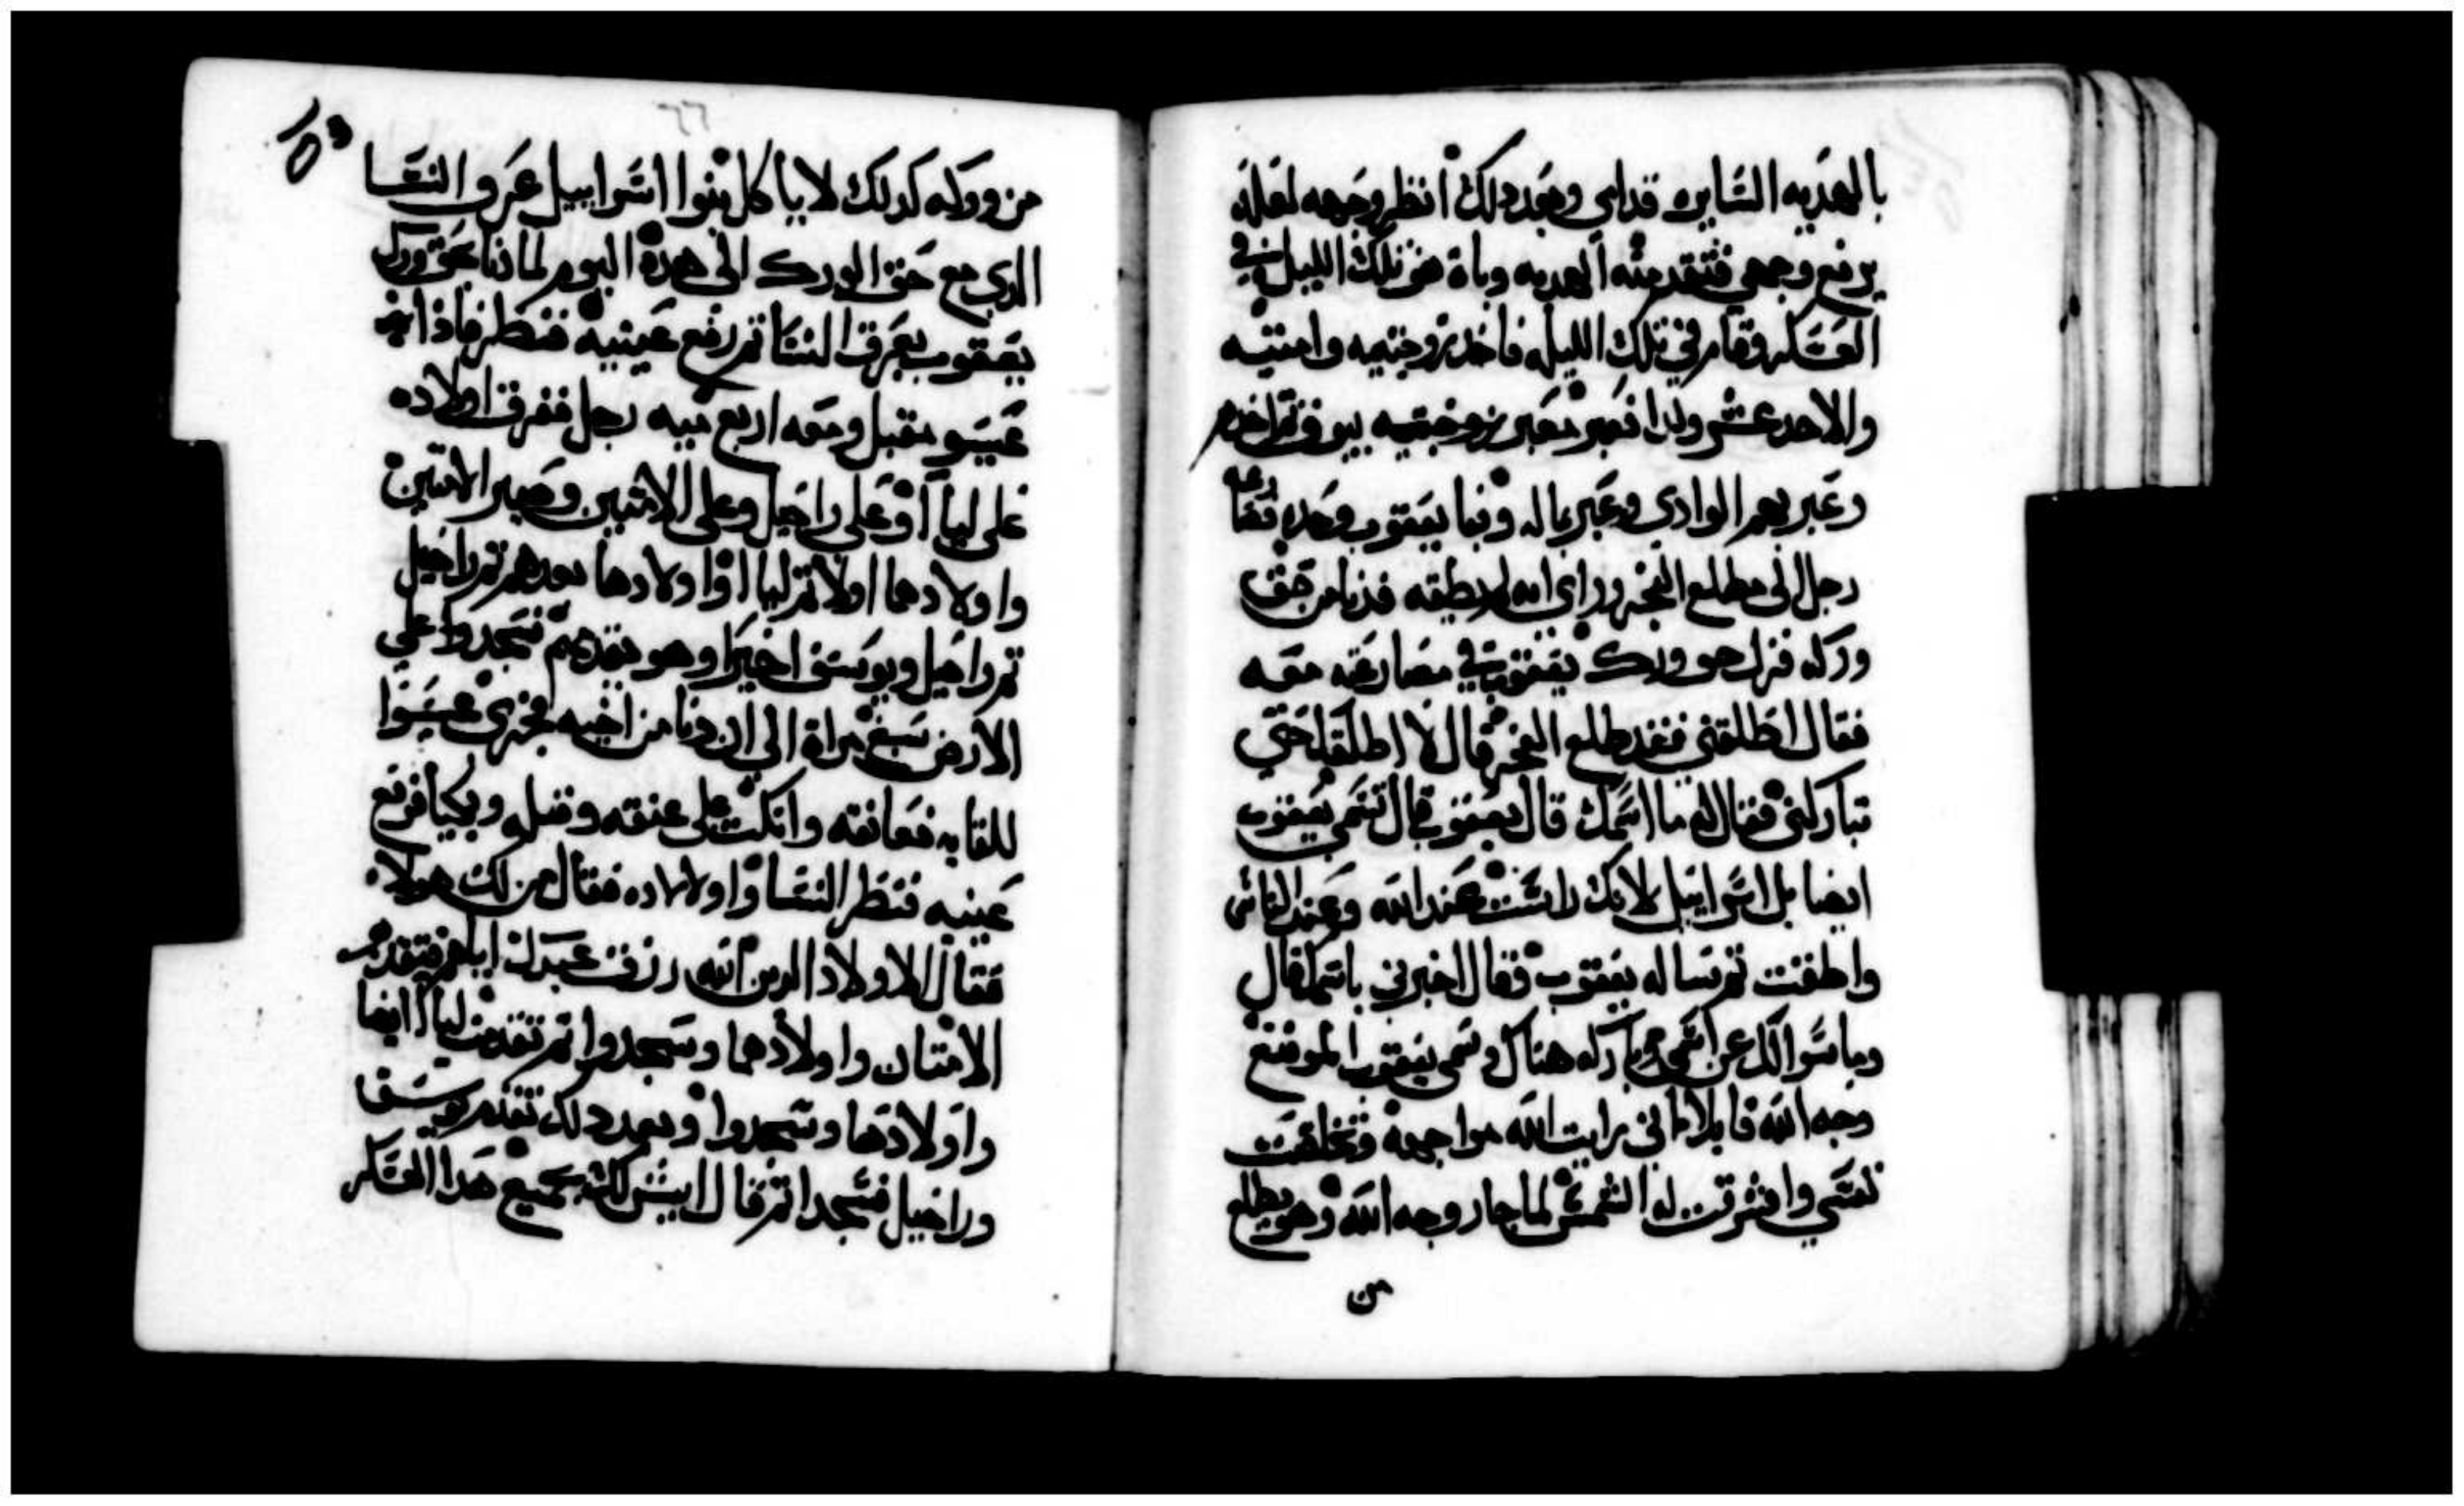 بالهديه السايره قدامي وبعد دلك انظر وجهه لعله
يرفع وجهي فتقدمته الهديه وباة هو تلك الليله في
العسكر وقام في تلك الليله فاخد زوجتيه وامتيه
والاحد عشر ولدا فعبر معبر يبوق تم اخدهم
وعبر بهم الوادي وعبر بماله وبقا يعقوب وحده فصارعه
رجل الى مطلع الفجر وراى انه لا يطيقه فدنا من حق
وركه فزل حق ورك يعقوب في مصارعته معه
فقال اطلقني فقد طلع الفجر قال لا اطلقك حتي
تباركني فقال له ما اسمك قال يعقوب قال لا تسمي يعقوب
ايضا بل اسراييل لانك راست عند الله وعند الناس
واطقت تم ساله يعقوب فقال اخبرني باسمك قال
وما سوالك عن اسمي وباركه هناك وسمى يعقوب الموضع
وجه الله قايلا اني رايت الله مواجهة وتخلصت
نفسي واشرقت له الشمس لما جاز وجه الله وهو يطلع
من
٦٦
من وركه كدلك لا ياكل بنوا اسراييل عرق النسا
الدي مع حق الورك الى هده اليوم لما دنا بحق ورك
يعقوب بعرق النسا تم رفع عينيه فنظر فاذا
عيسو مقبل ومعه اربع ميه رجل ففرق اولاده
على ليا او على راحيل وعلى الامتين وصير الامتين
واولادهما اولا تم ليا واولادها بعدهم تم راحيل
تم راحيل ويوسف اخيرا وهو يقدمهم فسجدوا علي
الارض سبع مراة الي ان دنا من اخيه فجرى عيسوا
للقايه فعانقه وانكب على عنقه وقبله وبكيا فرفع
عينيه فنظر النسا واولاده فقال من لك هولاء
فقال الاولاد الدين الله رزق عبدك اياهم فتقدم
الامتان واولادهما وسجدوا تم تقدمت ليا ايضا
واولادها وسجدوا وبعد دلك تقدم يوسف
وراحيل فسجدا تم قال ايش لك بجميع هدا العسكر